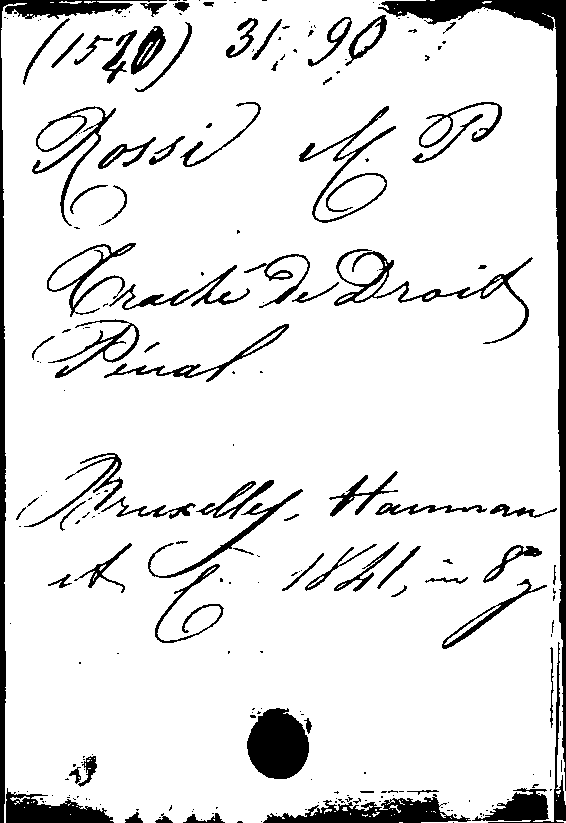 31. 90
Rossi M. P
Traité de Droit
Pénal.
Bruxelles, Hauman
et C. 1841, in 8º